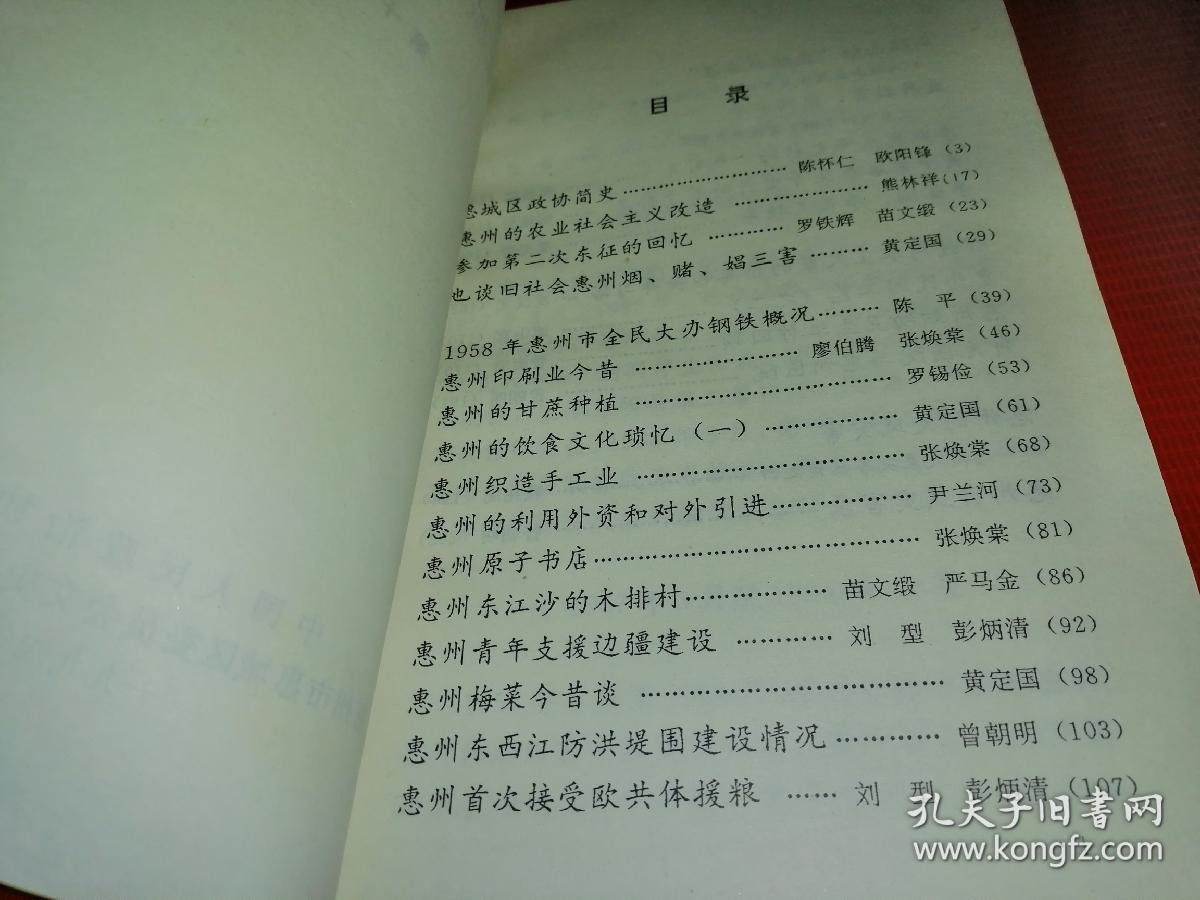 目 录
惠城区政协简史………………………… 陈怀仁 欧阳锋(3)
惠州的农业社会主义改造 ………………… 熊林祥(17)
参加第二次东征的回忆 ………… 罗铁辉 苗文缎(23)
也谈旧社会惠州烟、赌、娼三害 ……… 黄定国(29)
1958年惠州市全民大办钢铁概况……… 陈 平(39)
惠州印刷业今昔 ……………………… 廖伯腾 张焕棠(46)
惠州的甘蔗种植 ………………………………… 罗锡俭(53)
惠州的饮食文化琐忆(一)……………… 黄定国(61)
惠州织造手工业 ………………………………… 张焕棠(68)
惠州的利用外资和对外引进……………… 尹兰河(73)
惠州原子书店…………………………………… 张焕棠(81)
惠州东江沙的木排村……………… 苗文缎 严马金(86)
惠州青年支援边疆建设 ………… 刘 型 彭炳清(92)
惠州梅菜今昔谈 ……………………………… 黄定国(98)
惠州东西江防洪堤围建设情况 ………… 曾朝明(103)
惠州首次接受欧共体援粮 …… 刘 型 彭炳清(107)
孔夫子旧书网
www.kongfz.com